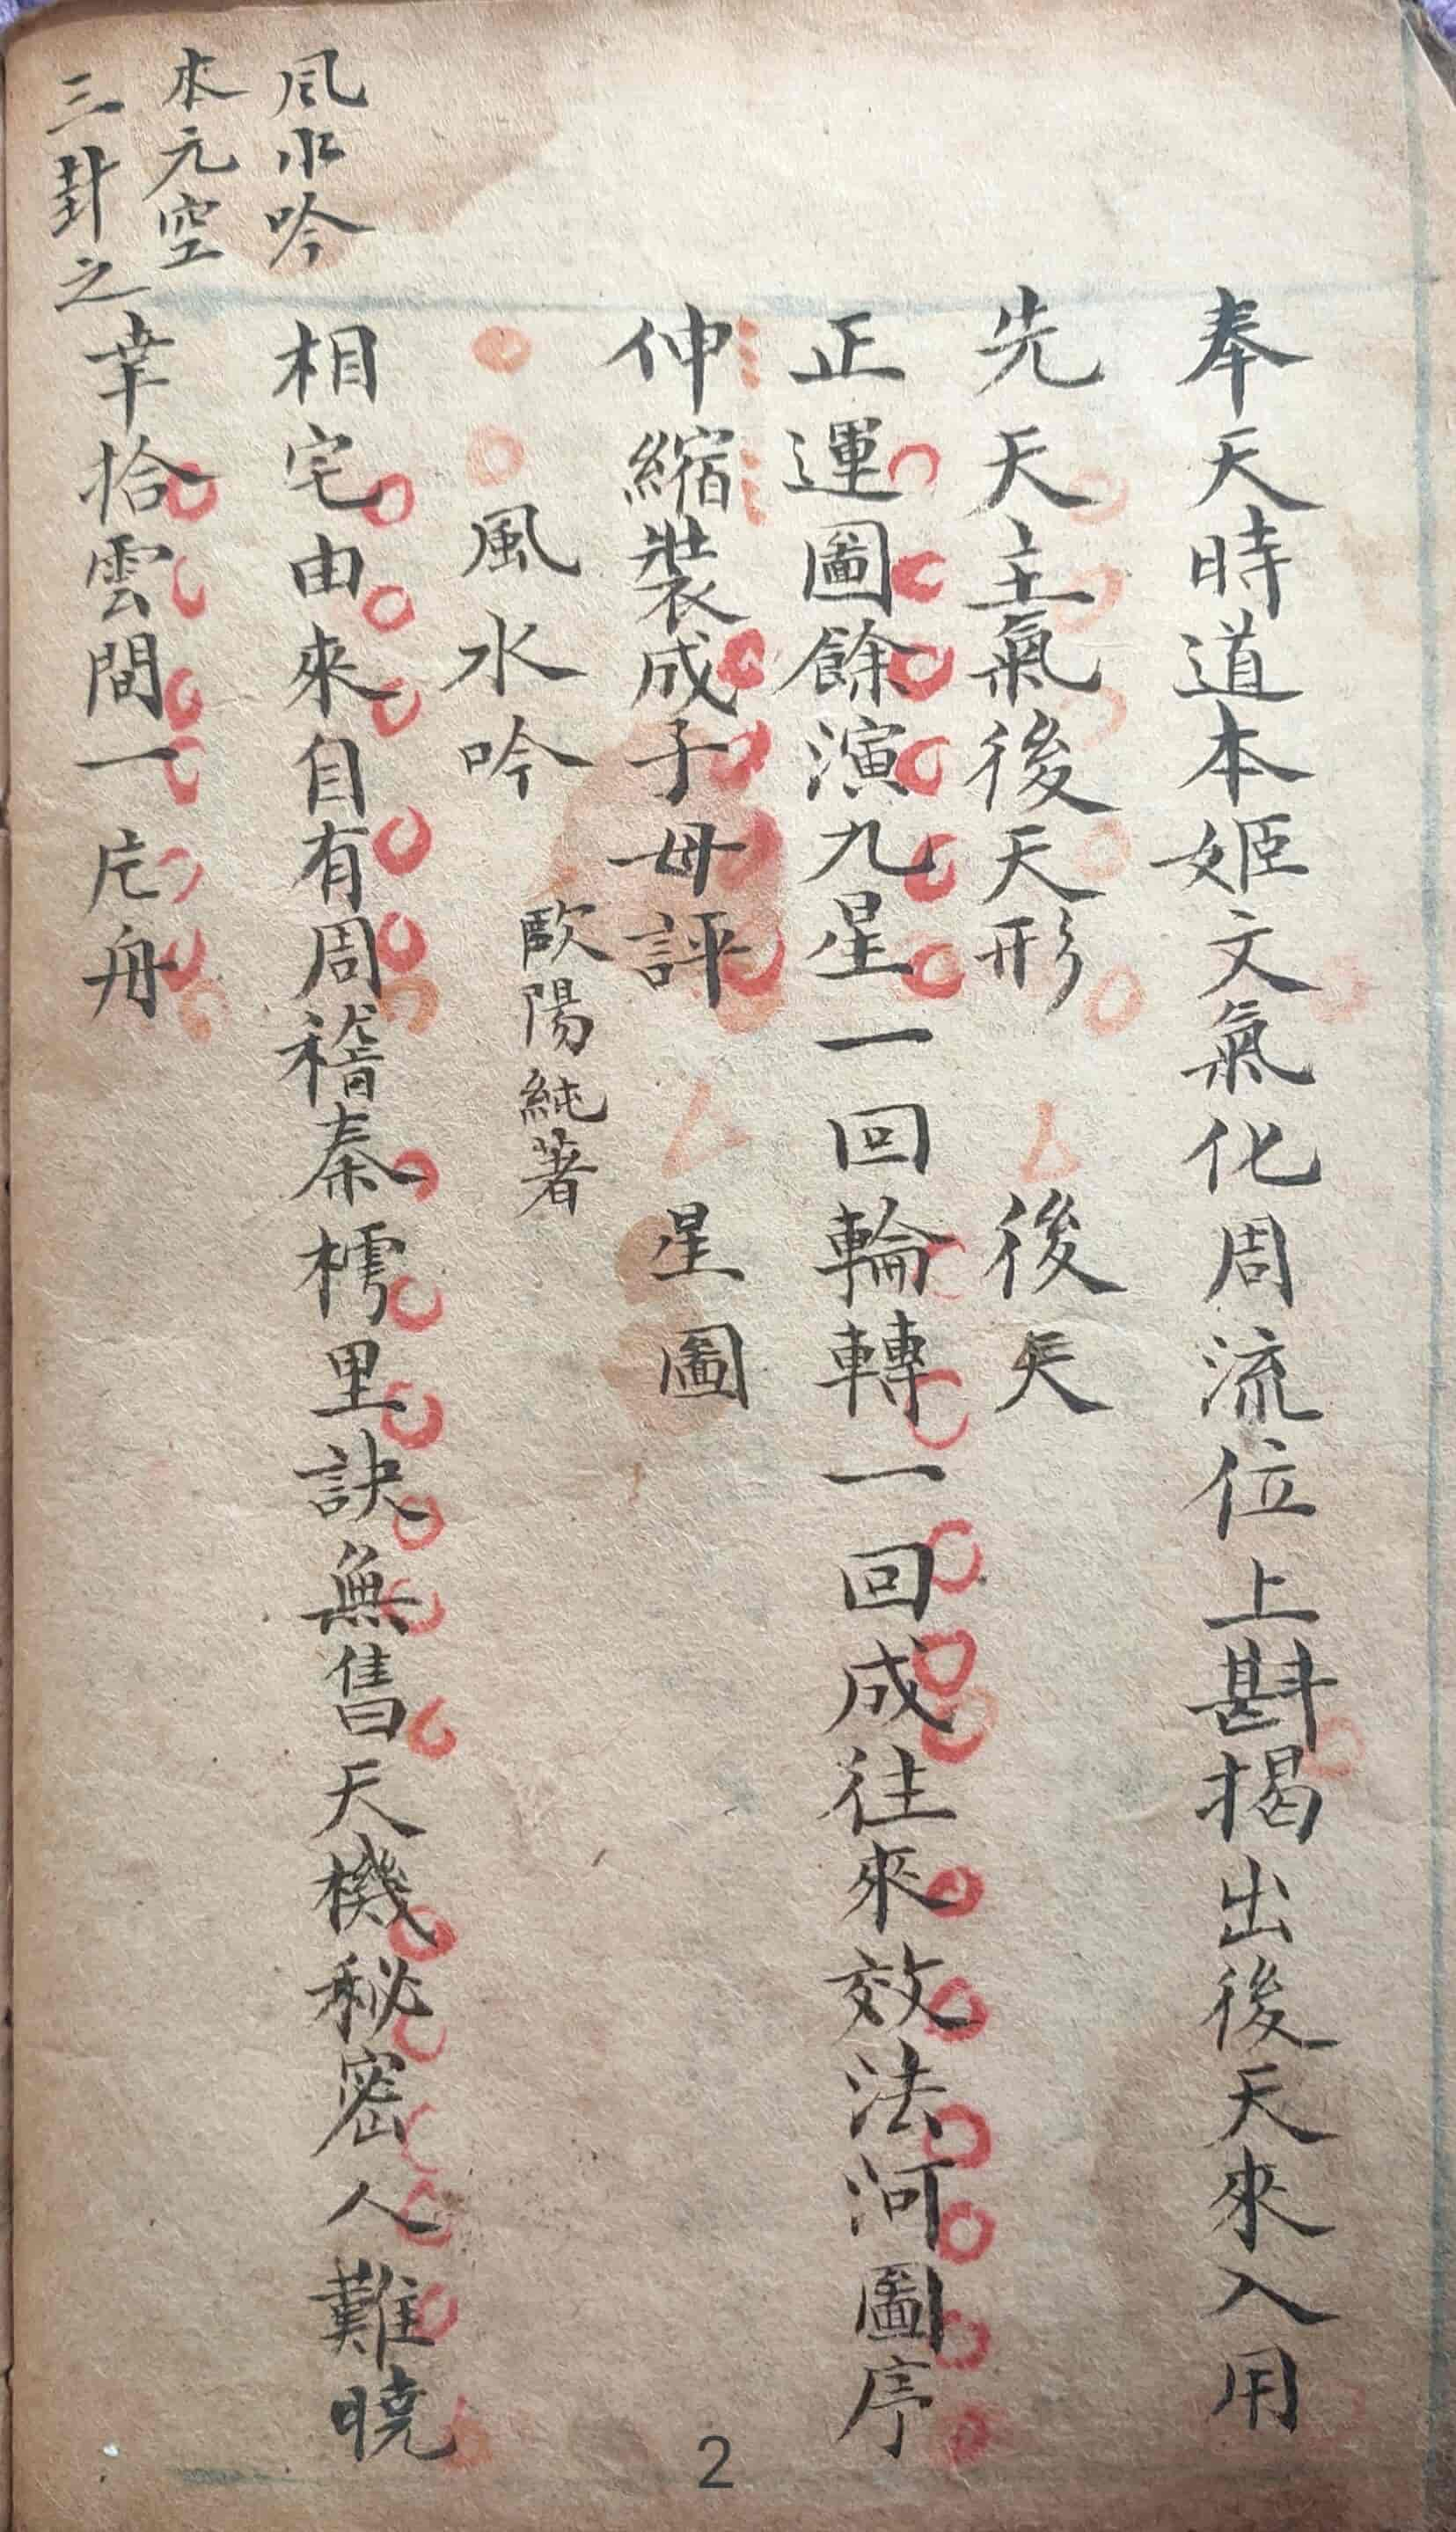 奉天時道本姬文氣化周流位上斟揭出後天來入用
先天主氣後天形 後天
正運圖餘演九星一回輪轉一回成往來效法河圖序
伸縮裝成子母評 星圖
風水吟 歐陽純著
風水吟
本元空
三卦之
相宅由來自有周稽秦樗里訣無售天機秘密人難曉
幸拾雲間一片舟
2